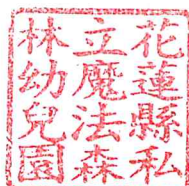 花蓮縣私
立魔法森
林幼兒園